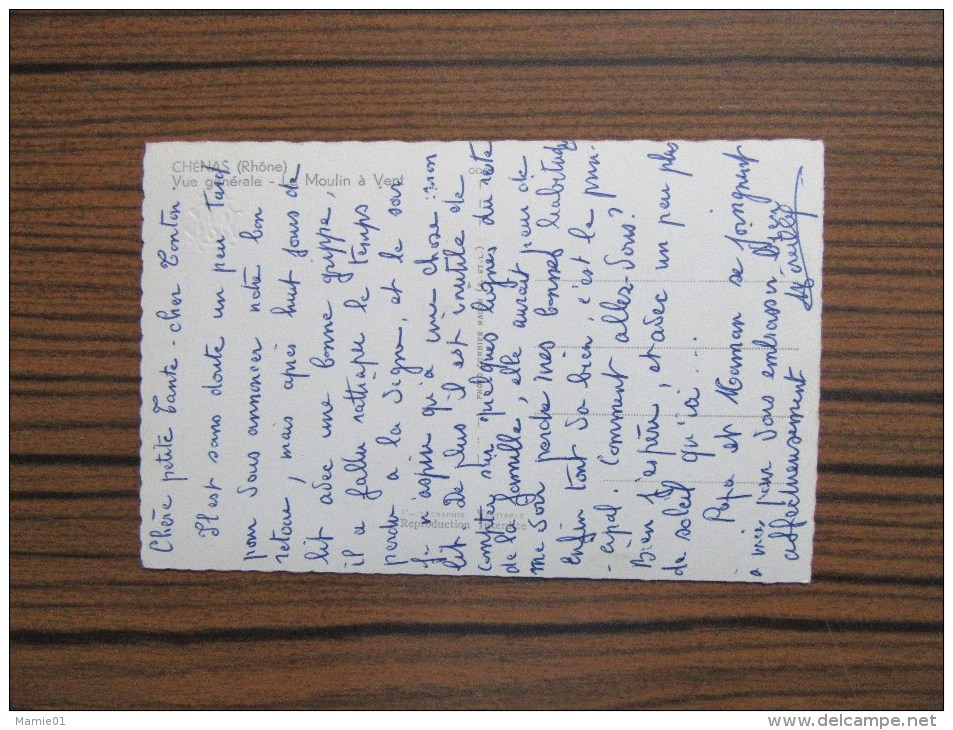 CHÊNAS (Rhône)
Vue générale - Le Moulin à Vent
Chère petite Tante - cher Tonton.
Il est sans doute un peu tard
pour vous annoncer notre bon
retour, mais après huit jours de
lit avec une bonne grippe,
il a fallu rattraper le temps
perdu à la vigne, et le soir
je n'aspire qu'à une chose : mon
lit. De plus il est inutile de
compter sur quelques lignes du reste
de la famille, elle aurait peur de
me voir perdre mes bonnes habitudes
Enfin tout va bien c'est le prin-
-cipal. Comment allez-vous ?
Bien j'espère, et avec un peu plus
de soleil qu'ici...
Papa et Maman se joignent
à moi pour vous embrasser bien
affectueusement
PHOTO COMBIER MACON (S.-ET-L.)
Reproduction Interdite
Mamie01
http://www.delcampe.net